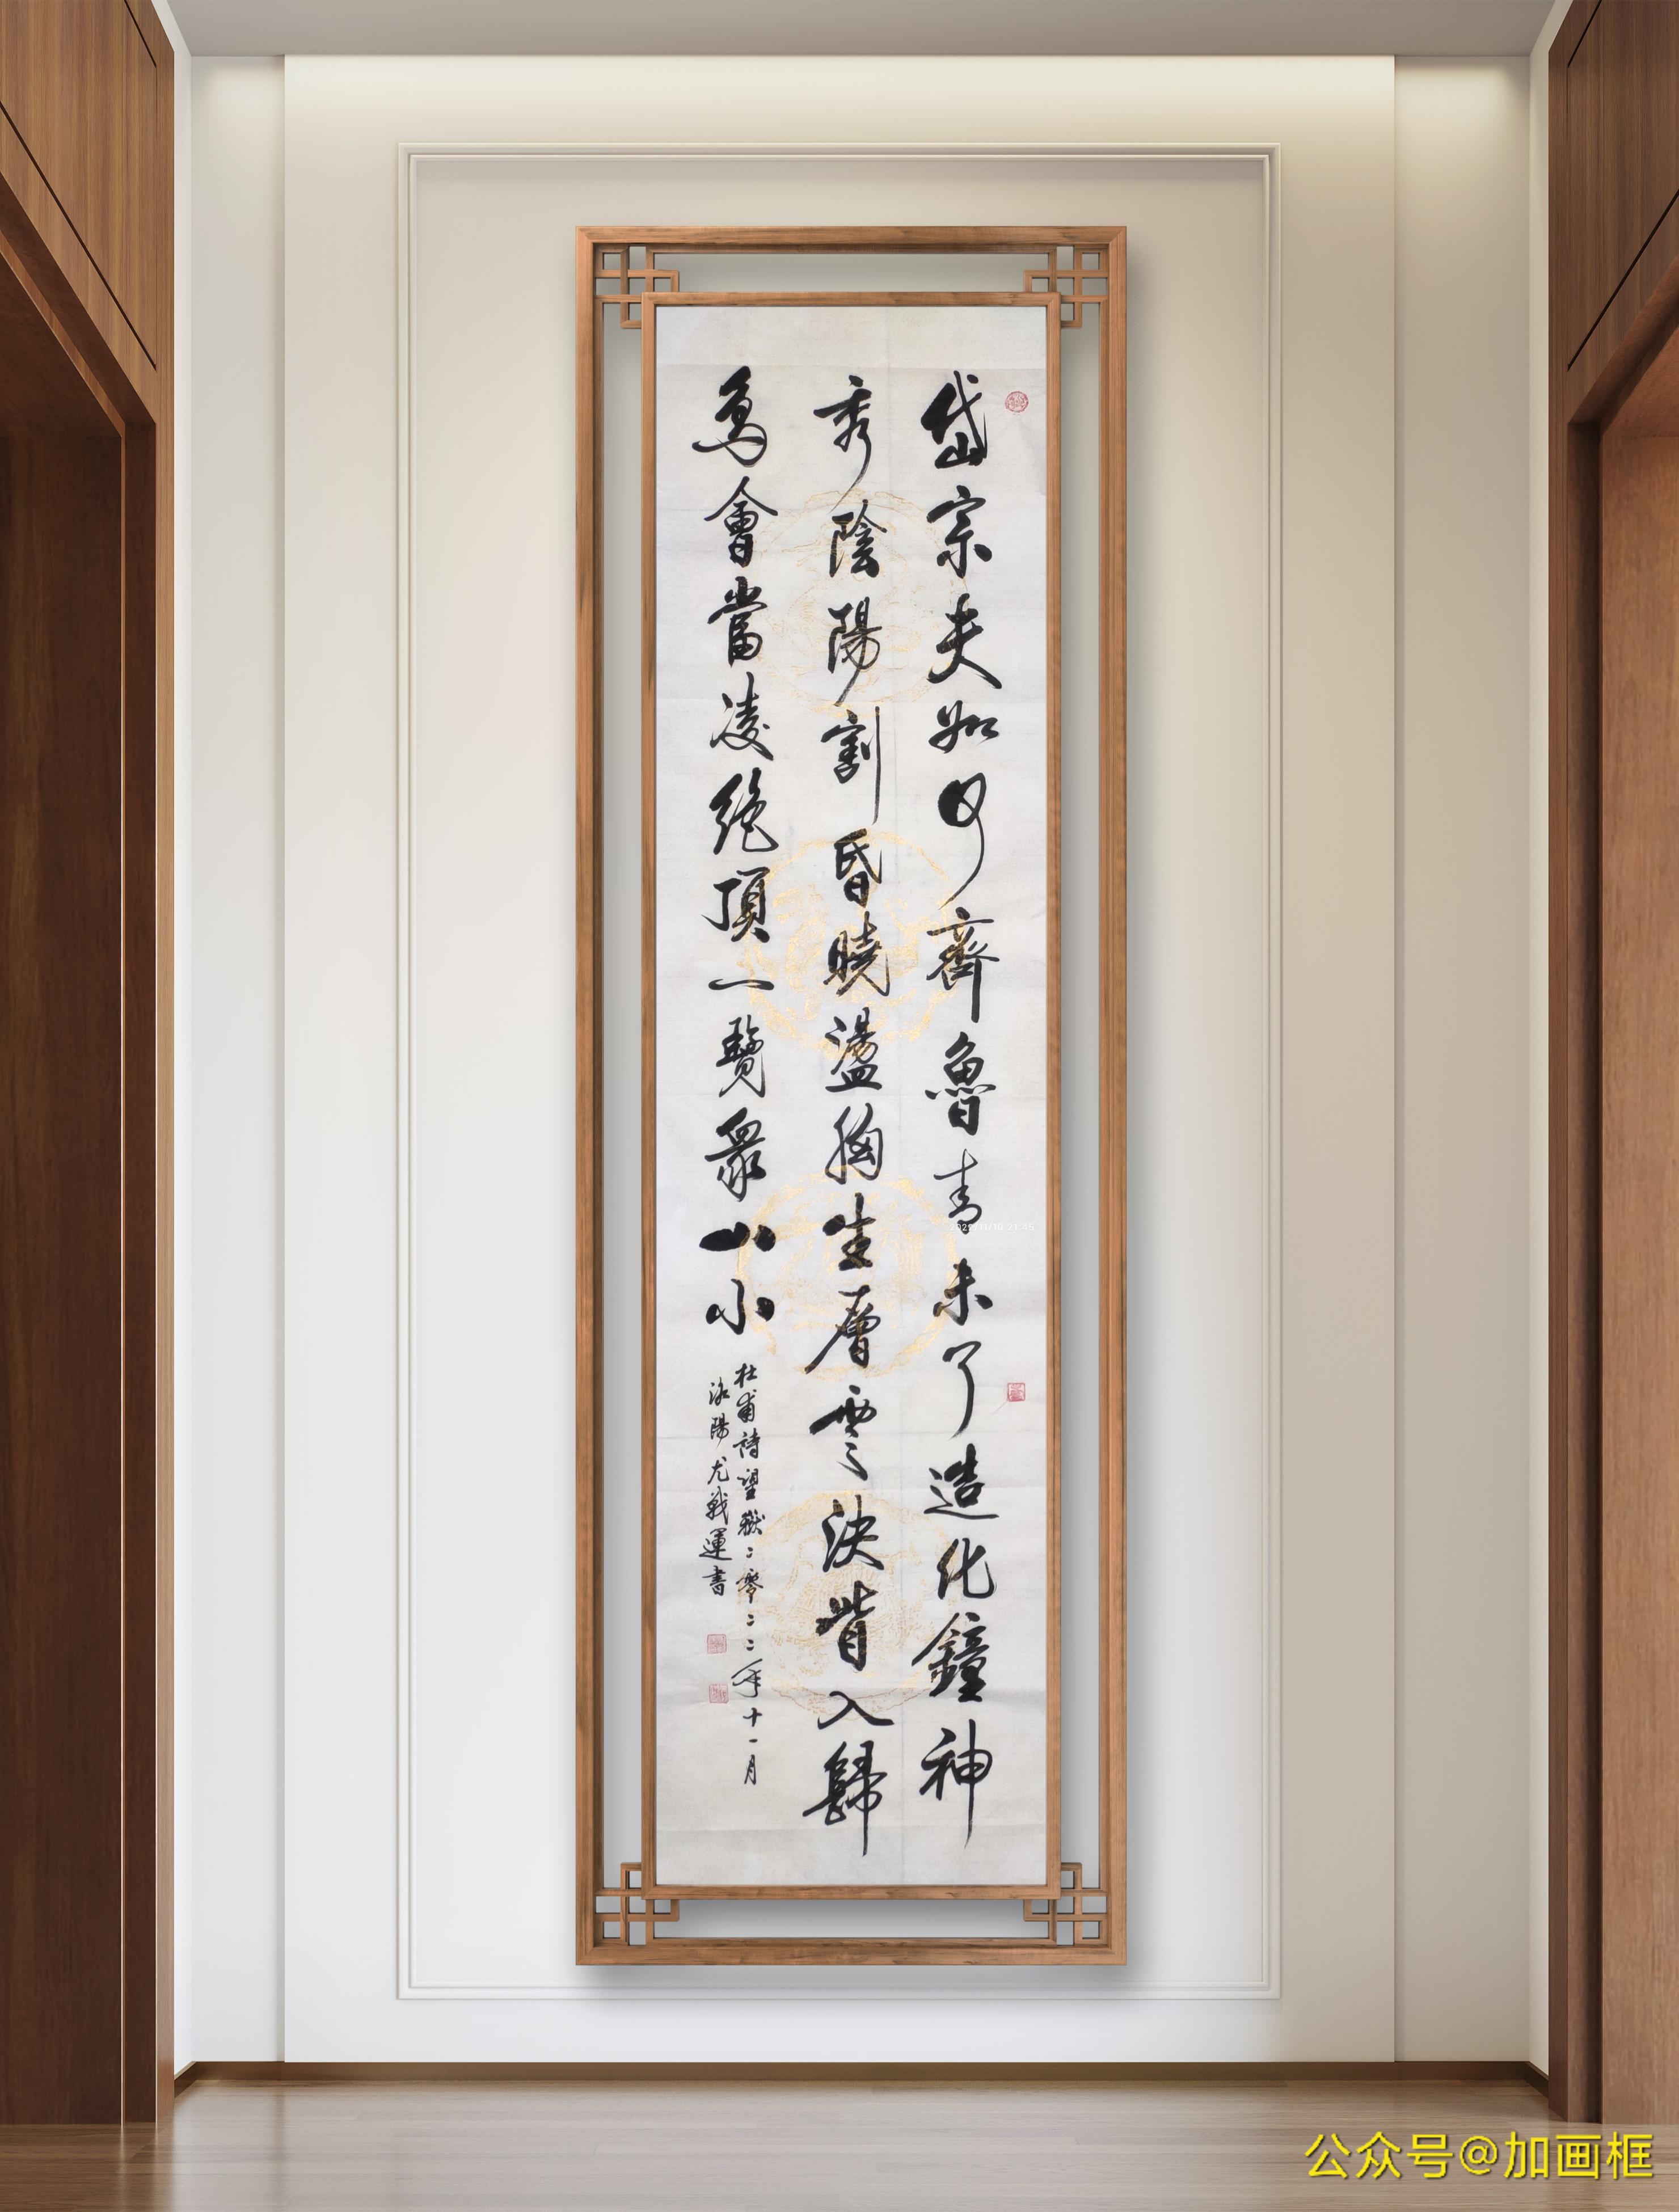 岱宗夫如何齊魯青未了造化鐘神
秀陰陽割昏曉盪胸生層雲決眥入歸
鳥會當凌絕頂一覽眾山小
杜甫詩望嶽二零二二年十一月
沭陽尤戰運書
公众号@加画框